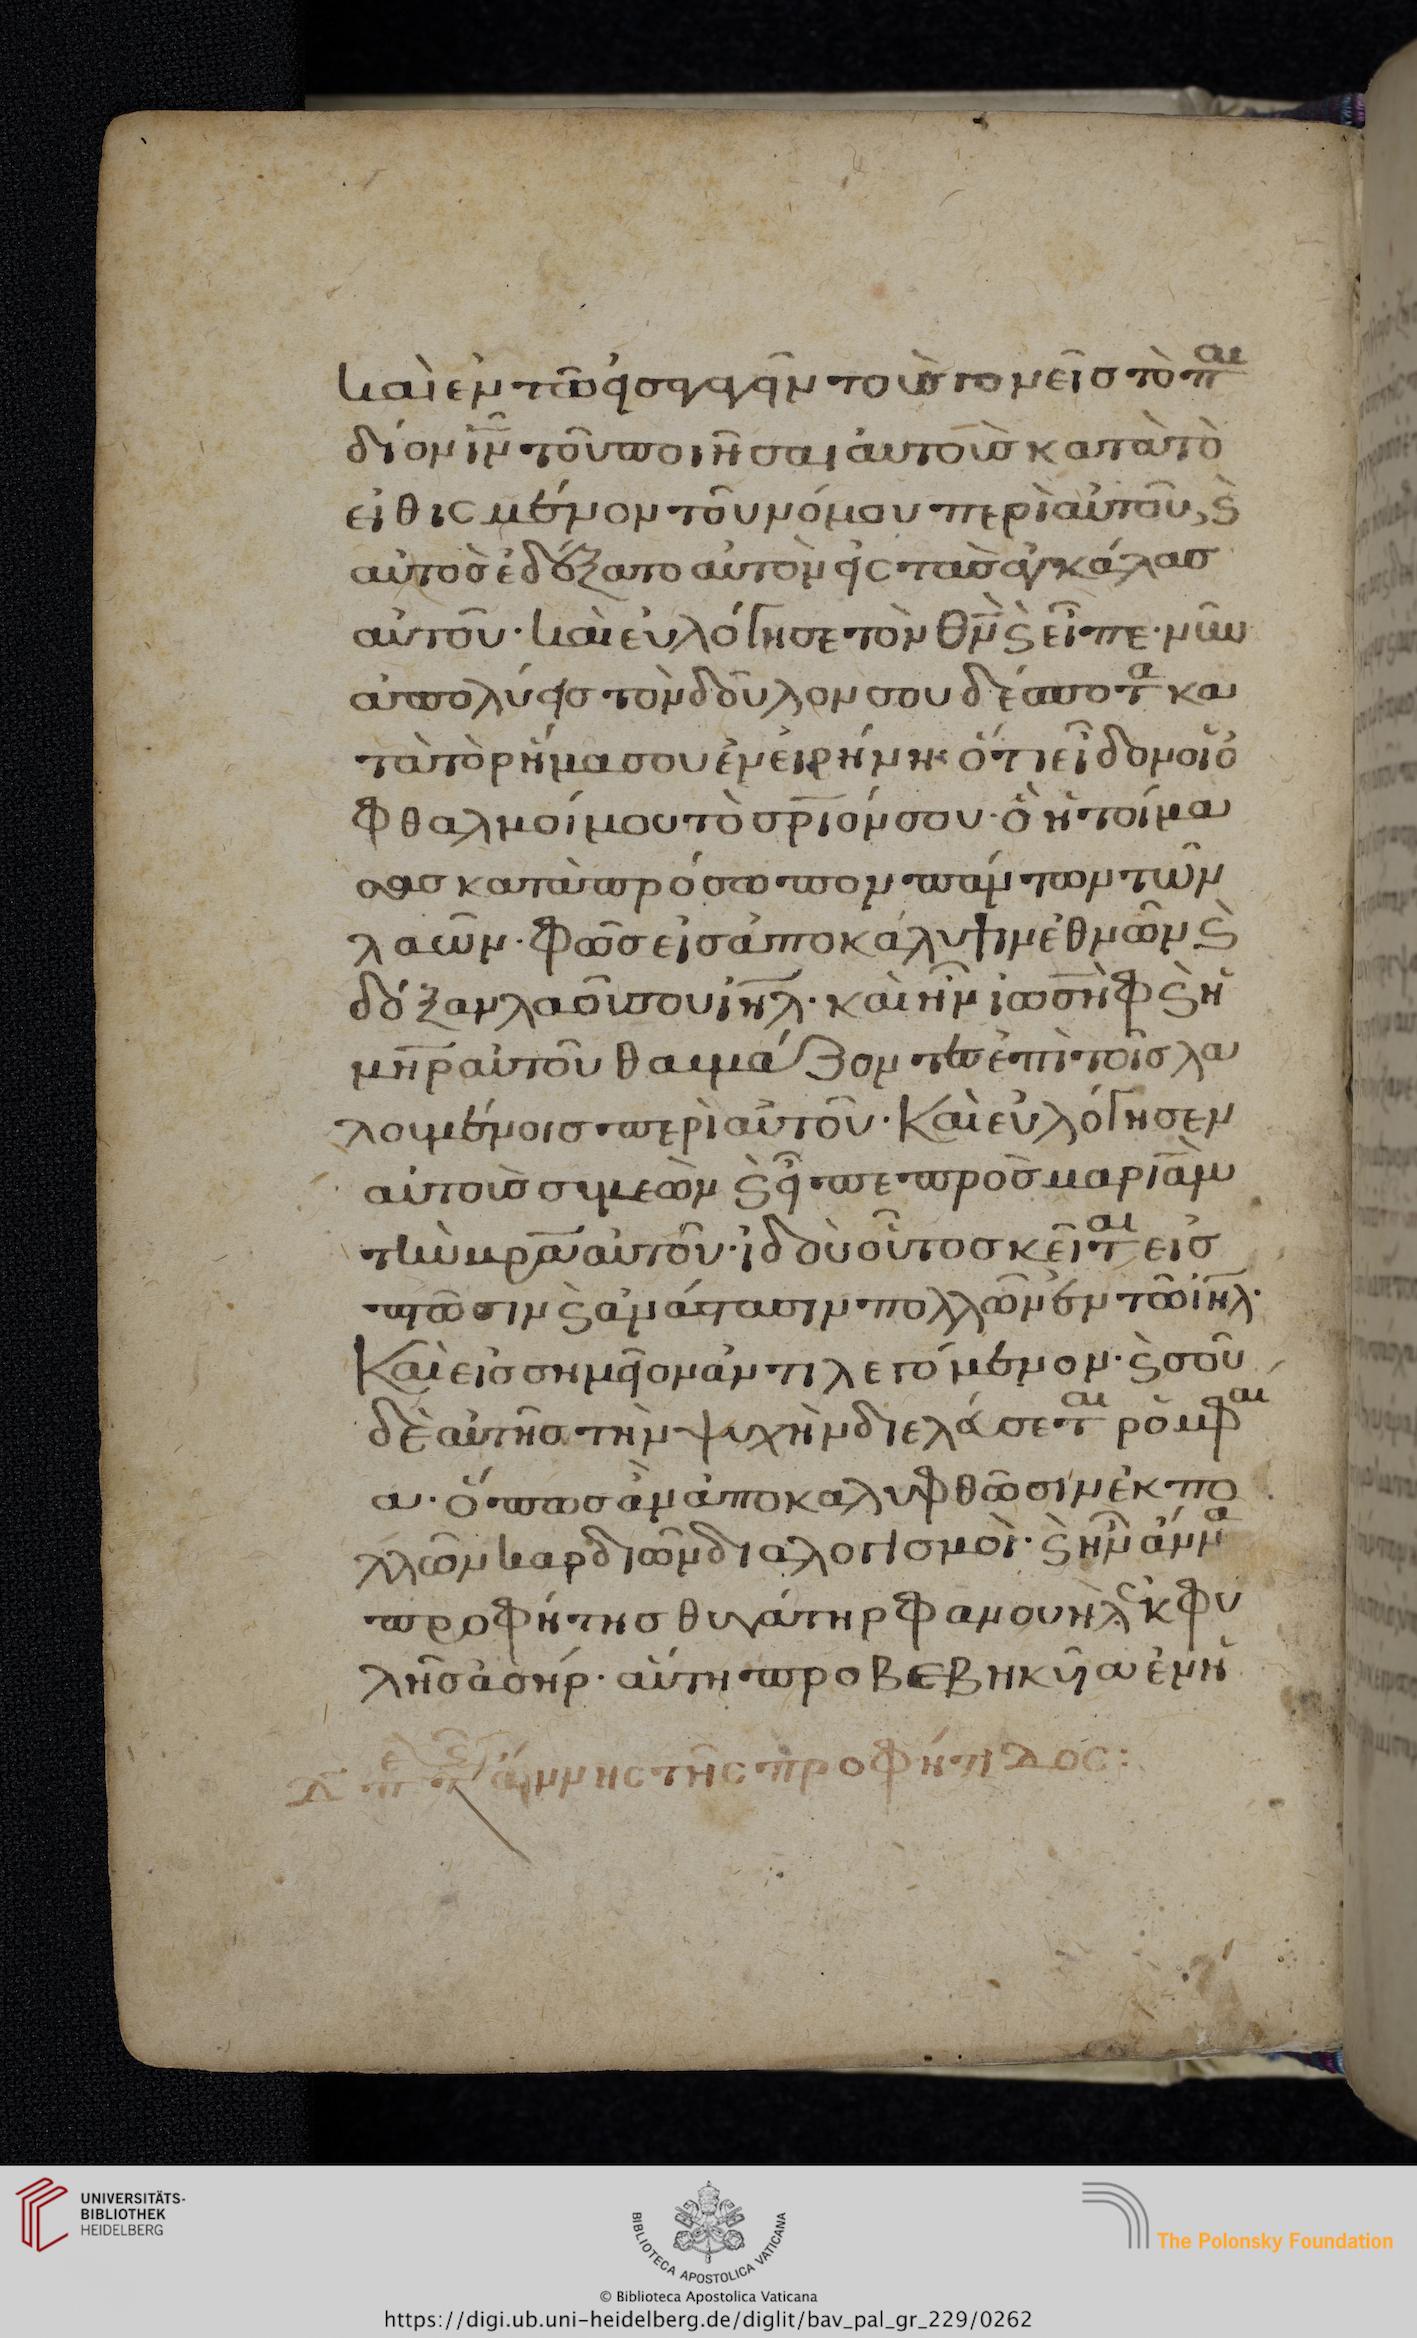 καὶ ἐν τῶ εἰσαγαγεῖν τοὺς γονεῖς τὸ παι
δίον ιν τοῦ ποιῆσαι αὐτοὺς κατὰ τὸ
εἰθισμένον τοῦ νόμου περὶ αὐτοῦ, ϗ
αὐτὸς ἐδέξατο αὐτὸν εἰς τὰς ἀγκάλας
αὐτοῦ· καὶ εὐλόγησε τὸν θν ϗ εἶπε· νῦν
ἀπολύεις τὸν δοῦλον σου δέσποτα κα
τὰ τὸ ρῆμα σου ἐν εἰρήνη· ὅτι εἶδον οἱ ὀ
φθαλμοί μου τὸ σριόν σου· ὃ ἡτοίμα
σας κατὰ πρόσωπον πάντων τῶν
λαῶν· φῶς εἰς ἀποκάλυψιν ἐθνῶν ϗ
δόξαν λαοῦ σου ιηλ· καὶ ἦν ἰωσὴφ ϗ ἡ
μηρ αὐτοῦ θαυμάζοντες ἐπὶ τοῖς λα
λουμένοις περὶ αὐτοῦ· Καὶ εὐλόγησεν
αὐτοὺς συμεὼν ϗ εἶπε πρὸς μαριὰμ
τὴν μρα αὐτοῦ· ἰδοὺ οὗτος κεῖται εἰς
πτῶσιν ϗ ἀνάστασιν πολλῶν ἐν τῶ ιηλ·
Καὶ εἰς σημεῖον ἀντιλεγόμενον· ϗ σοῦ
δὲ αὐτῆς τὴν ψυχὴν διελεύσεται ρομφαί
α· ὅπως ἂν ἀποκαλυφθῶσιν ἐκ πο
λλῶν καρδιῶν διαλογισμοὶ· ϗ ἦν ἄννα
προφήτης θυγάτηρ φανουὴλ ἐκ φυ
λῆς ἀσήρ· αὕτη προβεβηκυῖα ἐν ἡ
ἄννης τῆς προφήτιδος:
UNIVERSITÄTS-
BIBLIOTHEK
HEIDELBERG
BIBLIOTECA APOSTOLICA VATICANA
The Polonsky Foundation
© Biblioteca Apostolica Vaticana
https://digi.ub.uni-heidelberg.de/diglit/bav_pal_gr_229/0262